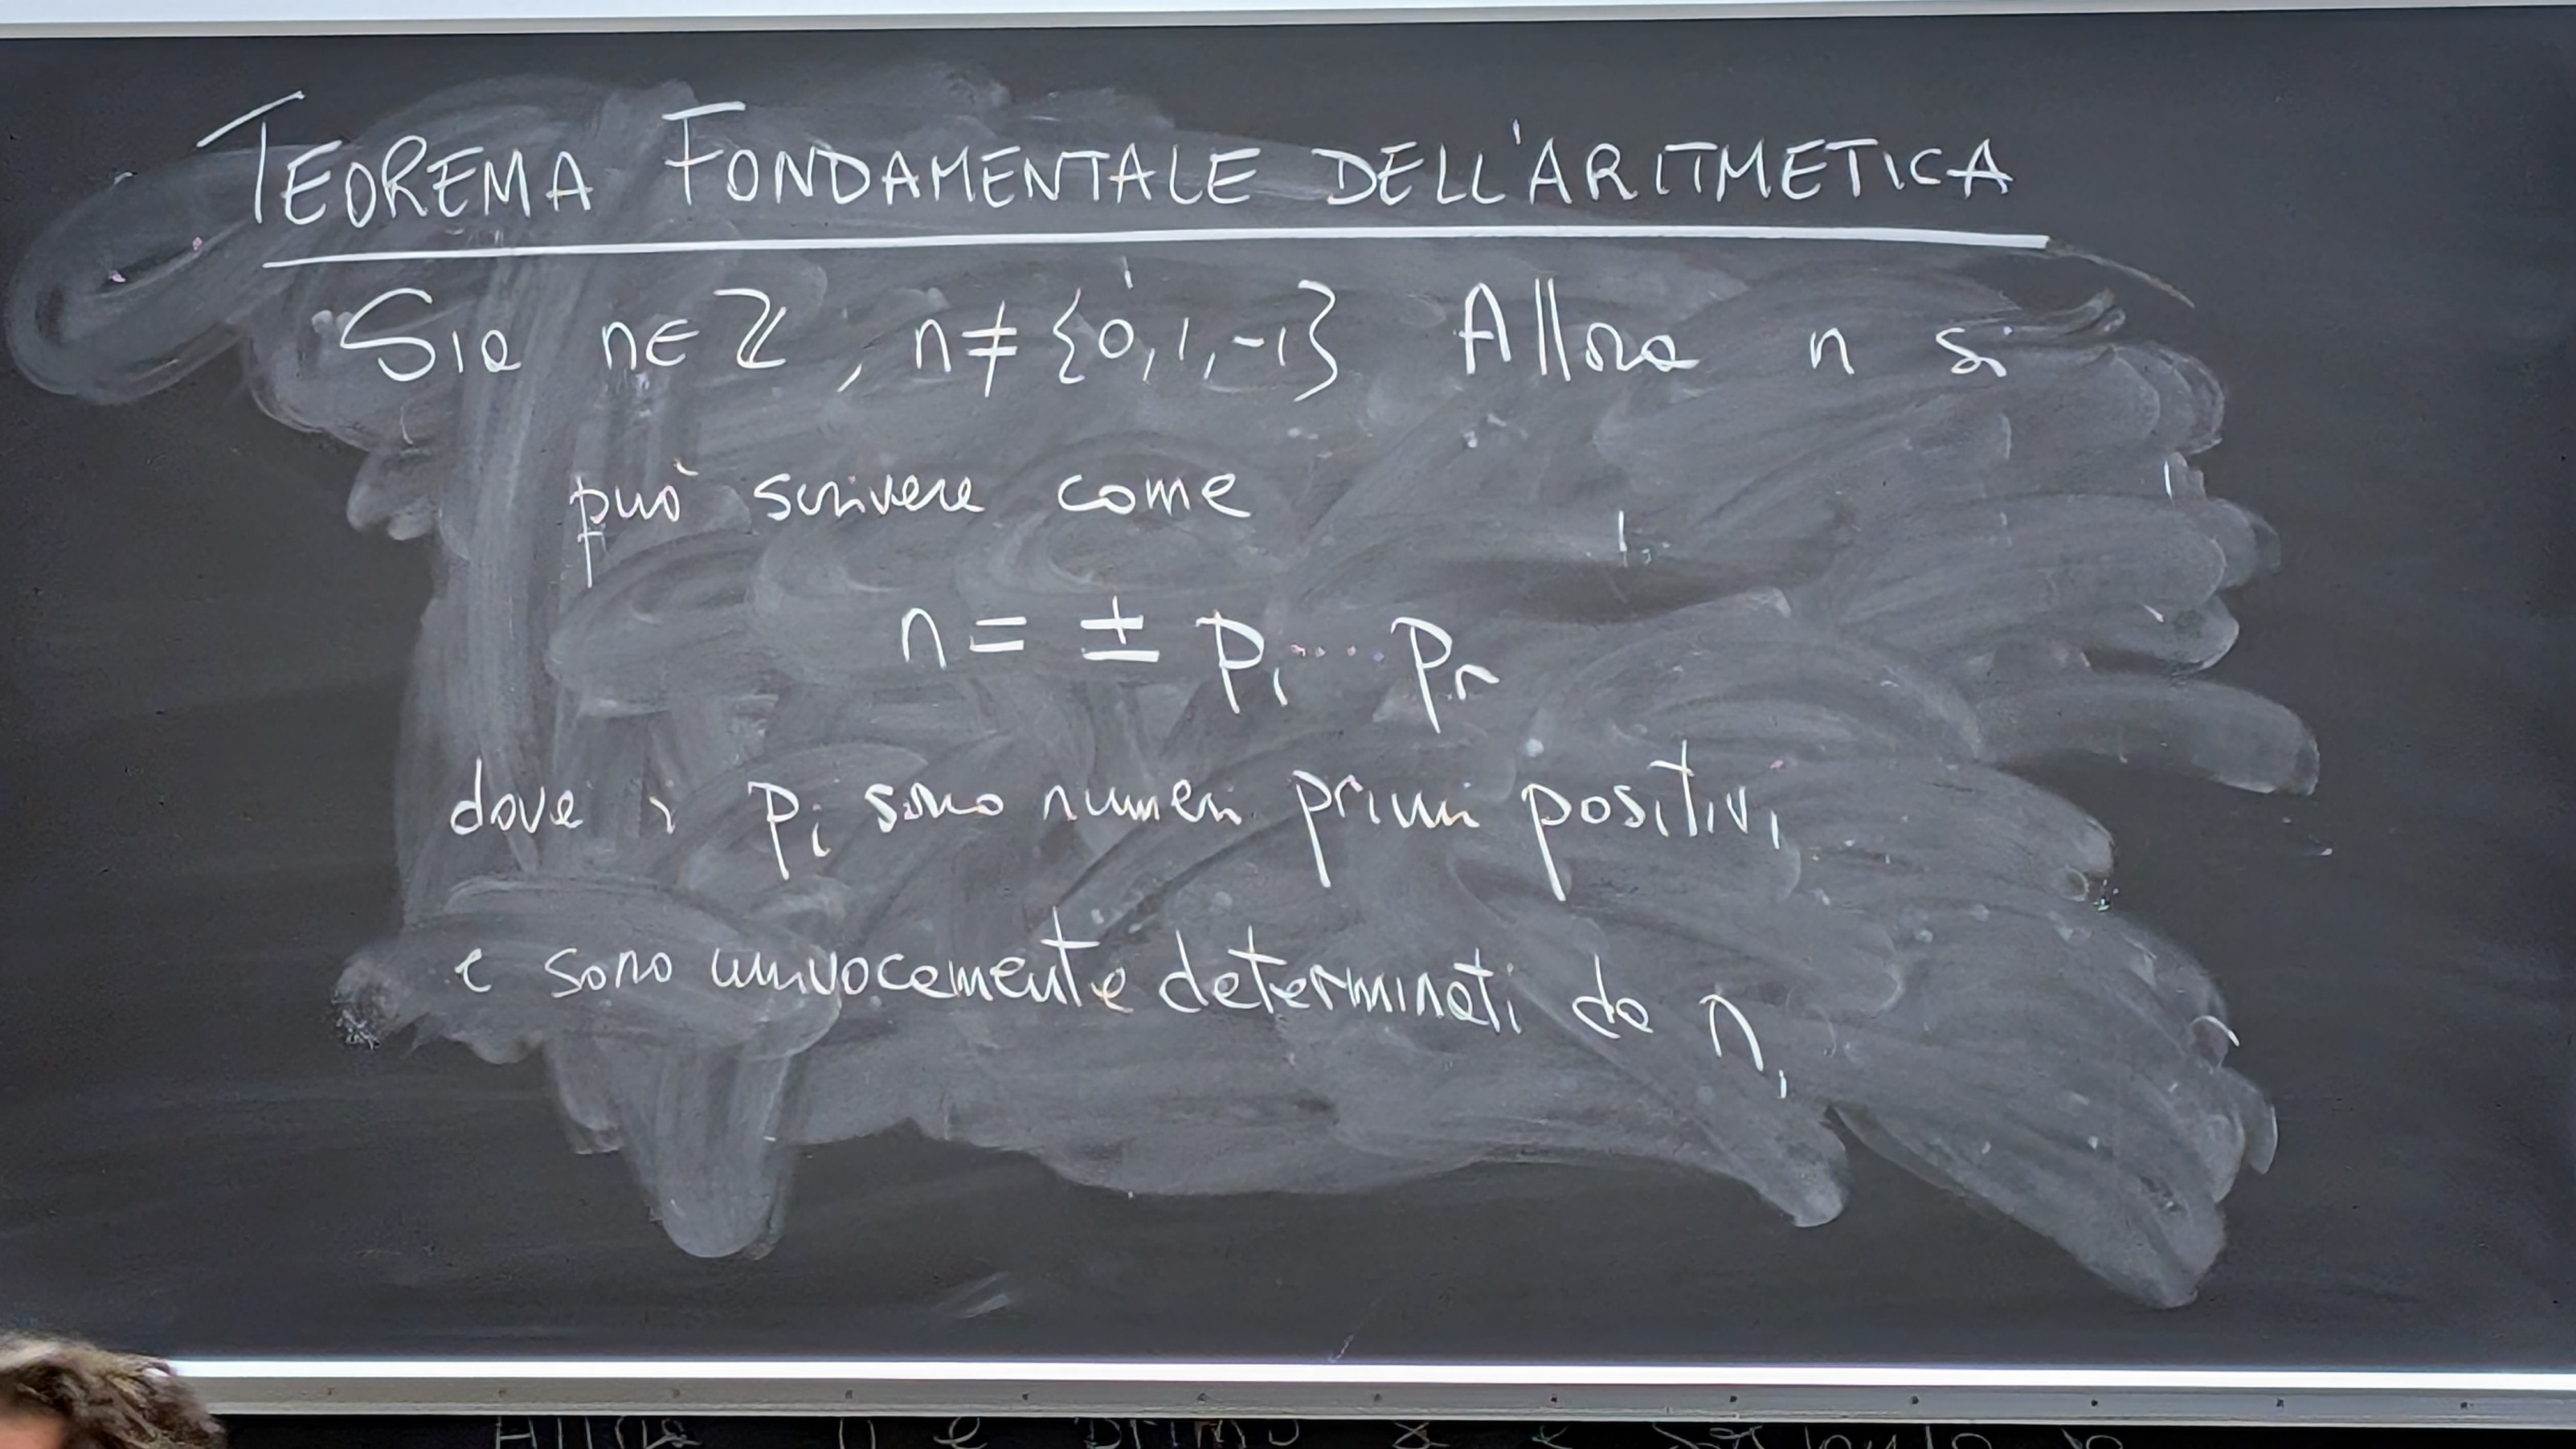 TEOREMA FONDAMENTALE DELL'ARITMETICA
Sia n∈ℤ, n≠{0,1,-1} Allora n si
può scrivere come
n = ± p₁ ···· pᵣ
dove i pᵢ sono numeri primi positivi
e sono univocamente determinati da n.
Allora n è primo